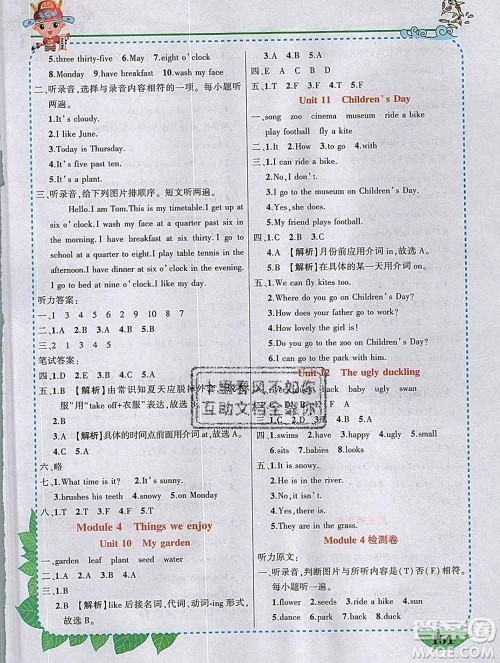 5.three thirty-five 6.twelve 7.eight o'clock
8.Monday 9.have breakfast 10.wash my face
二、听录音,选择与录音内容相符的一项。每小题听
两遍。
1.It's cloudy.
2.I like June.
3.Today is Thursday.
4.It's five past ten.
5.It's a plant.
三、听录音,给下列图片排顺序。短文听两遍。
Hello.I am Tom.This is my timetable.I get up at
six o'clock.I wash my face at a quarter past six
in the morning. I have breakfast at half past six.
I go to school at seven thirty.I come back from
school at a quarter to eight.I play table tennis in the
afternoon.I have dinner at six o'clock in the evening.
I go to bed at nine o'clock.
听力答案:
一、1 3 4 5 7 8 9
二、1.A 2.B 3.A 4.B 5.A
三、5 1 3 2 4
笔试答案:
四、1.D 2.B 3.C 4.A
五、1.B
服”用“take off+衣服”表达,故选B。
2.A 【解析】具体的时间点前面用介词at,故选A。
3.B 4.A 5.B
六、略
七、1.What time is it? 2.It's snowy.
3.brushes his teeth 4.snowy 5.on Monday
八、1.F 2.T 3.F 4.T 5.T
Module 4 Things we enjoy
Unit 10 My garden
一、garden leaf plant seed water
二、1.A 2.B 3.A 4.A 5.A
三、1.A
2.B 【解析】like后接名词、代词、动词-ing形式,
故选B。
3.B 4.B 5.A
四、5 1 2 4 3
五、1.T 2.F 3.T 4.F 5.T
Unit 11 Children's Day
一、song zoo cinema museum ride a bike
play football fly a kite
二、1.C 2.A 3.B 4.C 5.A
三、1.I can ride a bike.
2.No,I don't.
3.I go to the museum on Children's Day.
4.Yes,she does.
5.My friend plays football.
四、1.A 2.B 3.C
4.A 【解析】月份前应用介词in,故选A。
5.B 【解析】在具体的某一天用介词on。
五、1.We can fly kites too.
2.Where do you go on Children's Day?
3.How beautiful the flowers are!
4.How lovely the girl is!
5.I can go to the park with them.
Unit 12 The ugly duckling
back baby ugly swan
三、1.C 2.D 3.
四、1.swims 2.have 3.goes 4.snowy
5.sits 6.babies 7.happy 8.families
五、1.It is snowy.
2.He is in the river.
3.No,it isn't.
4.Yes,they are.
5.They are from the seed.
Module 4 检测卷
听力原文:
一、听录音,判断图片与所听内容是(T)否(F)相
符。每小题听两遍。
1.flower 2.seeds 3.duck 4.leaf
5.swan 6.dance 7.have a party
151
中里春风不如你
互动文档全靠你
答案圈
MXQE.COM